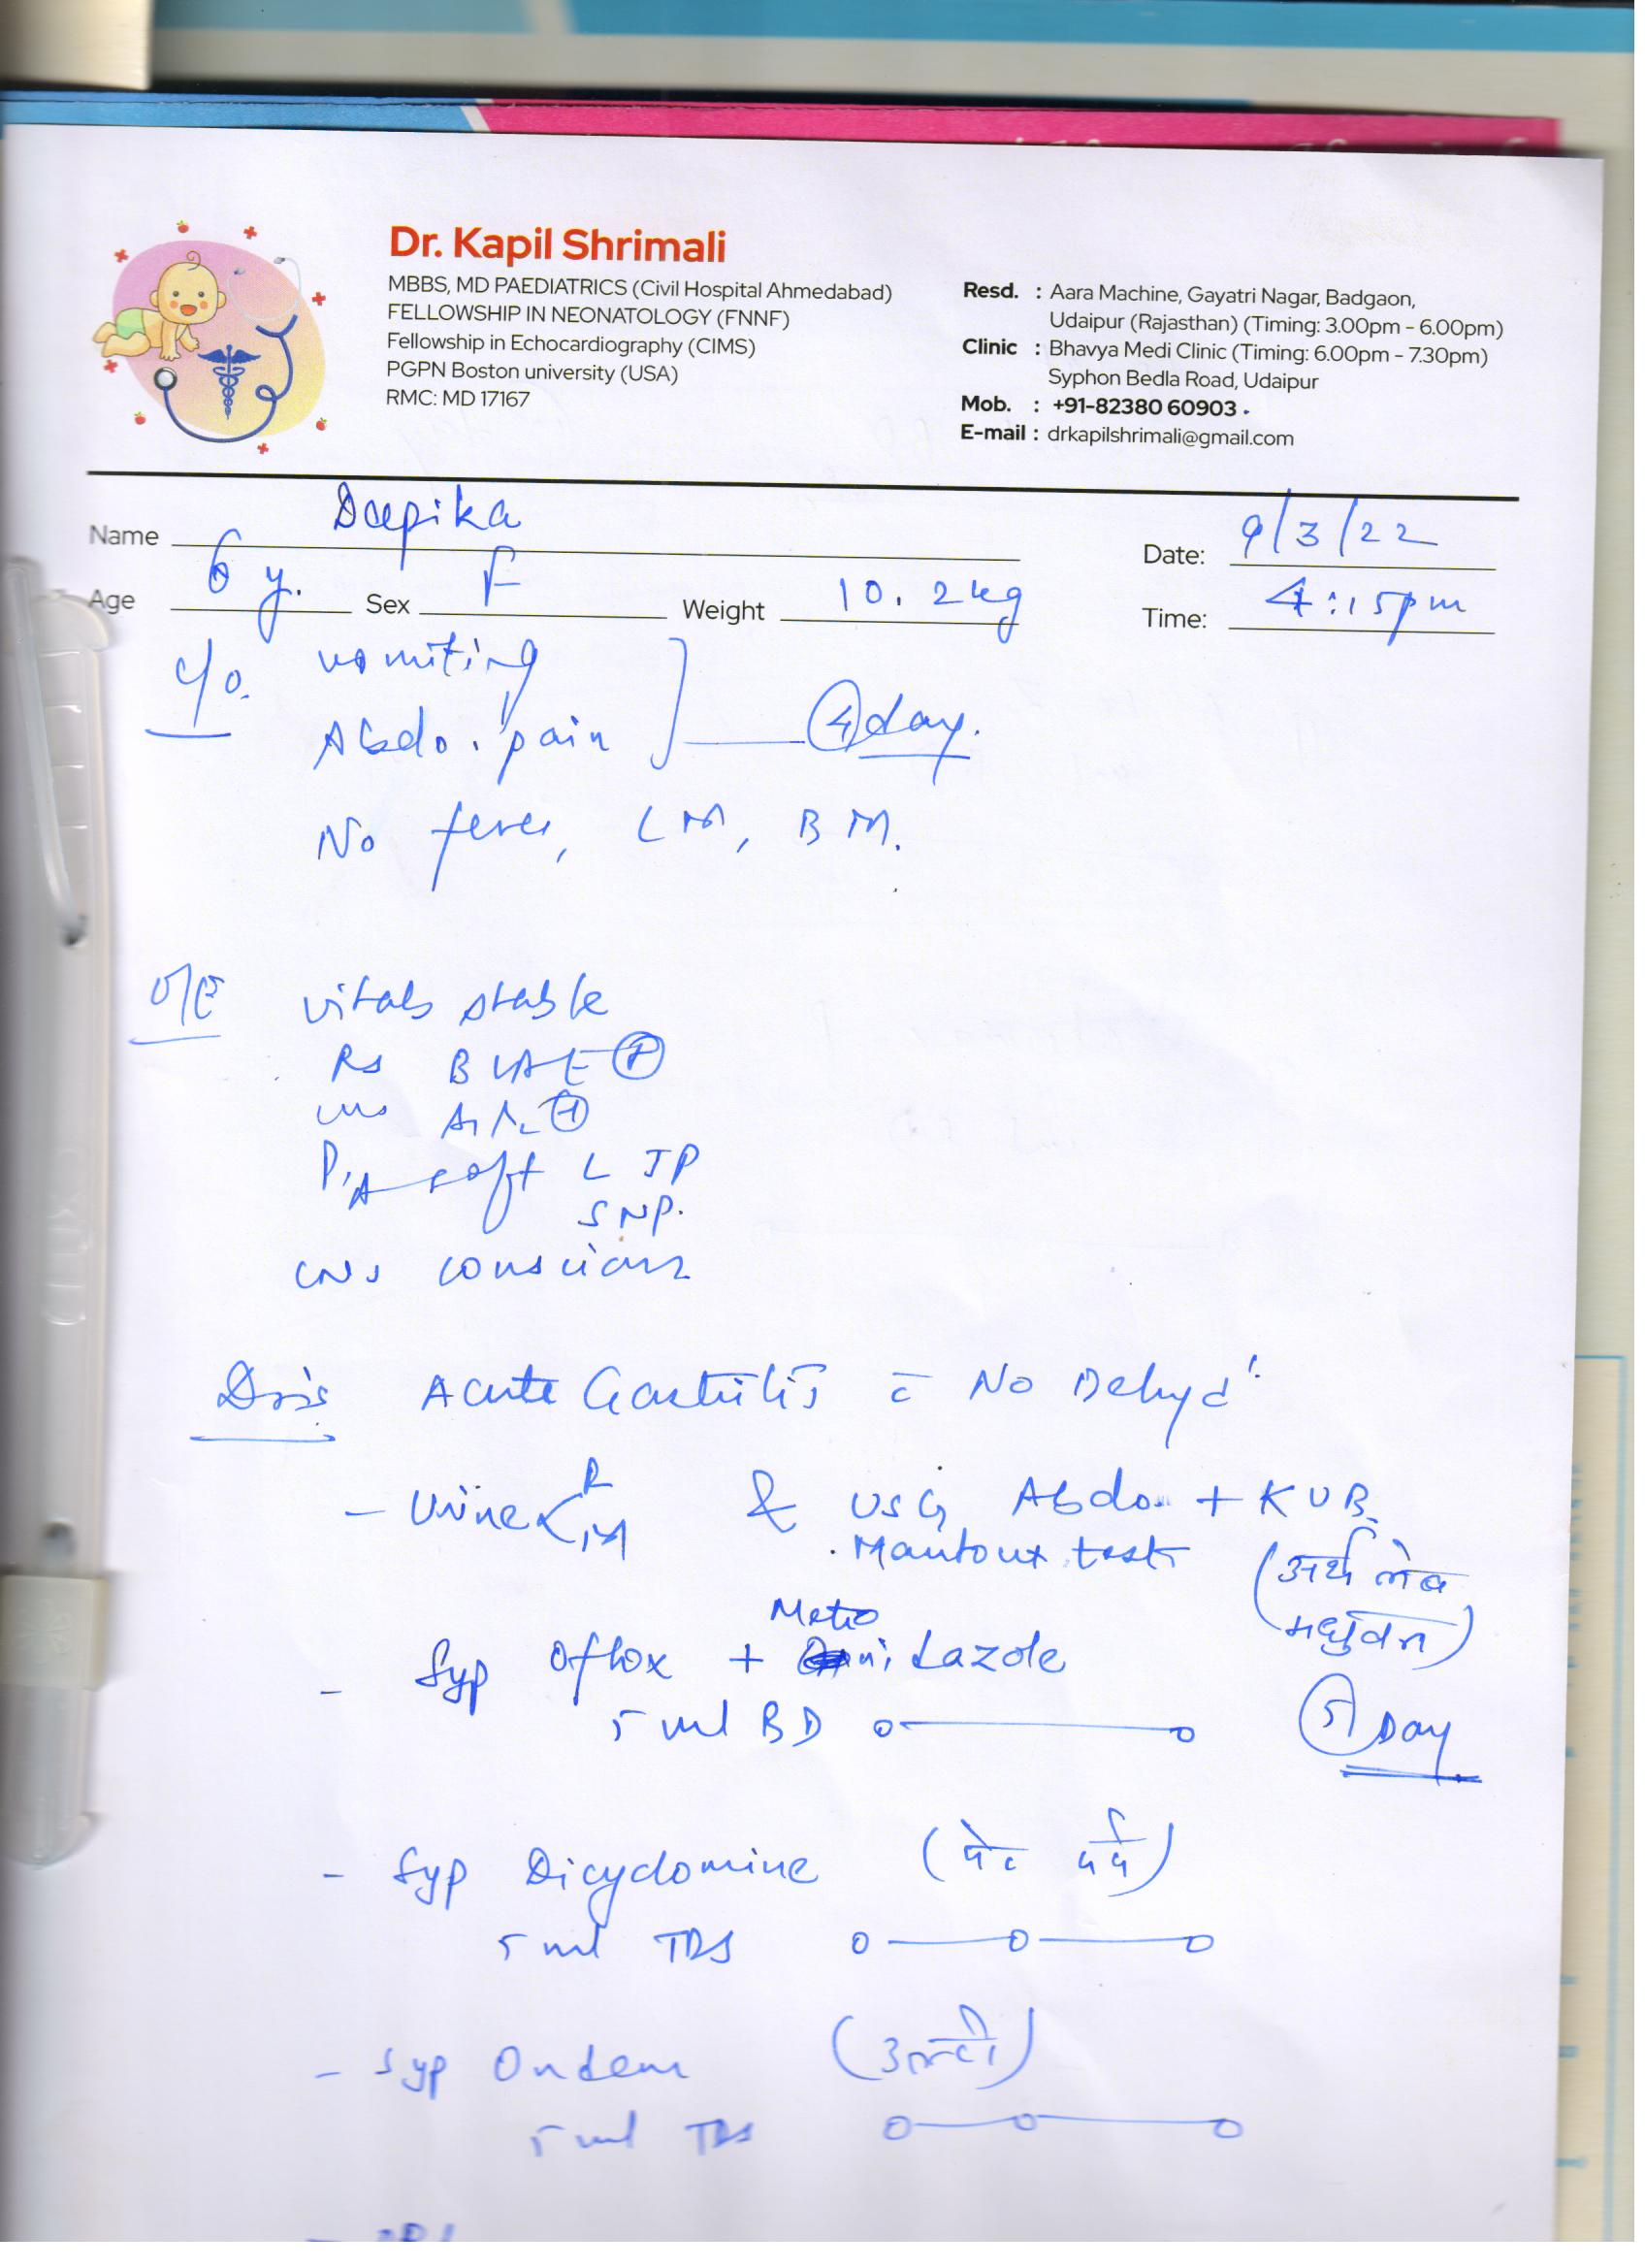 Dr. Kapil Shrimali
MBBS, MD PAEDIATRICS (Civil Hospital Ahmedabad)
FELLOWSHIP IN NEONATOLOGY (FNNF)
Fellowship in Echocardiography (CIMS)
PGPN Boston university (USA)
RMC: MD 17167
Resd. : Aara Machine, Gayatri Nagar, Badgaon,
Udaipur (Rajasthan) (Timing: 3.00pm - 6.00pm)
Clinic : Bhavya Medi Clinic (Timing: 6.00pm - 7.30pm)
Syphon Bedla Road, Udaipur
Mob. : +91-82380 60903
E-mail : drkapilshrimali@gmail.com
Name Deepika Date: 9/3/22
Age 6 y. Sex F Weight 10.2 kg Time: 4:15pm
c/o. vomiting
Abdo. pain 4 day.
No fever, LM, BM.
O/E vitals stable
RS BLAE +
CVS
P/A soft L
SNP.
CNS conscious
Acute Gastritis c̄ No Dehyd
- Urine R M & USG Abdo. + KUB.
Mantoux test
(अर्थ लेब
मधुवन)
Metro
- Syp Oflox + nidazole
5 ml BD 5 Day
- Syp Dicyclomine (पेट दर्द)
5 ml TDS
- Syp Ondem (उल्टी)
5 ml TDS